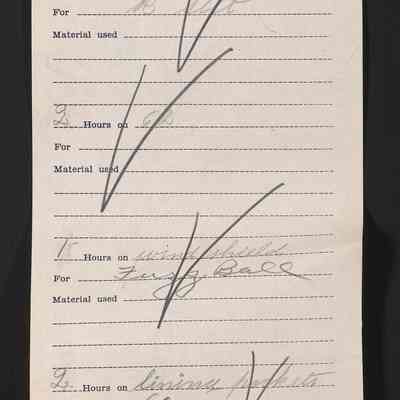 For
Material used
2 Hours on
For
Material used
Hours on windshield
For Fuzzy Ball
Material used
2 Hours on lining pockets